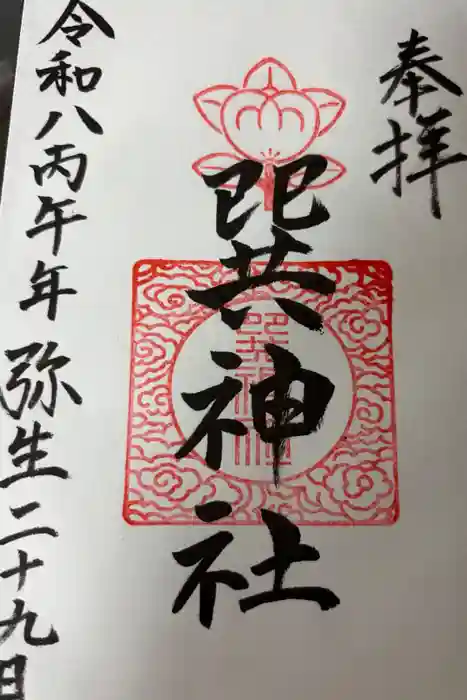 奉拝
巽神社
令和八丙午年弥生二十九日